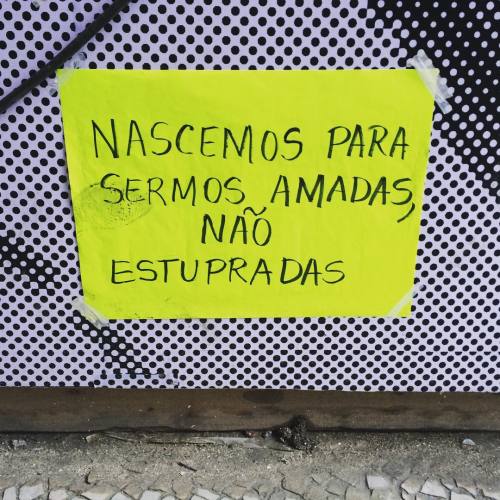 NASCEMOS PARA
SERMOS AMADAS,
NÃO
ESTUPRADAS